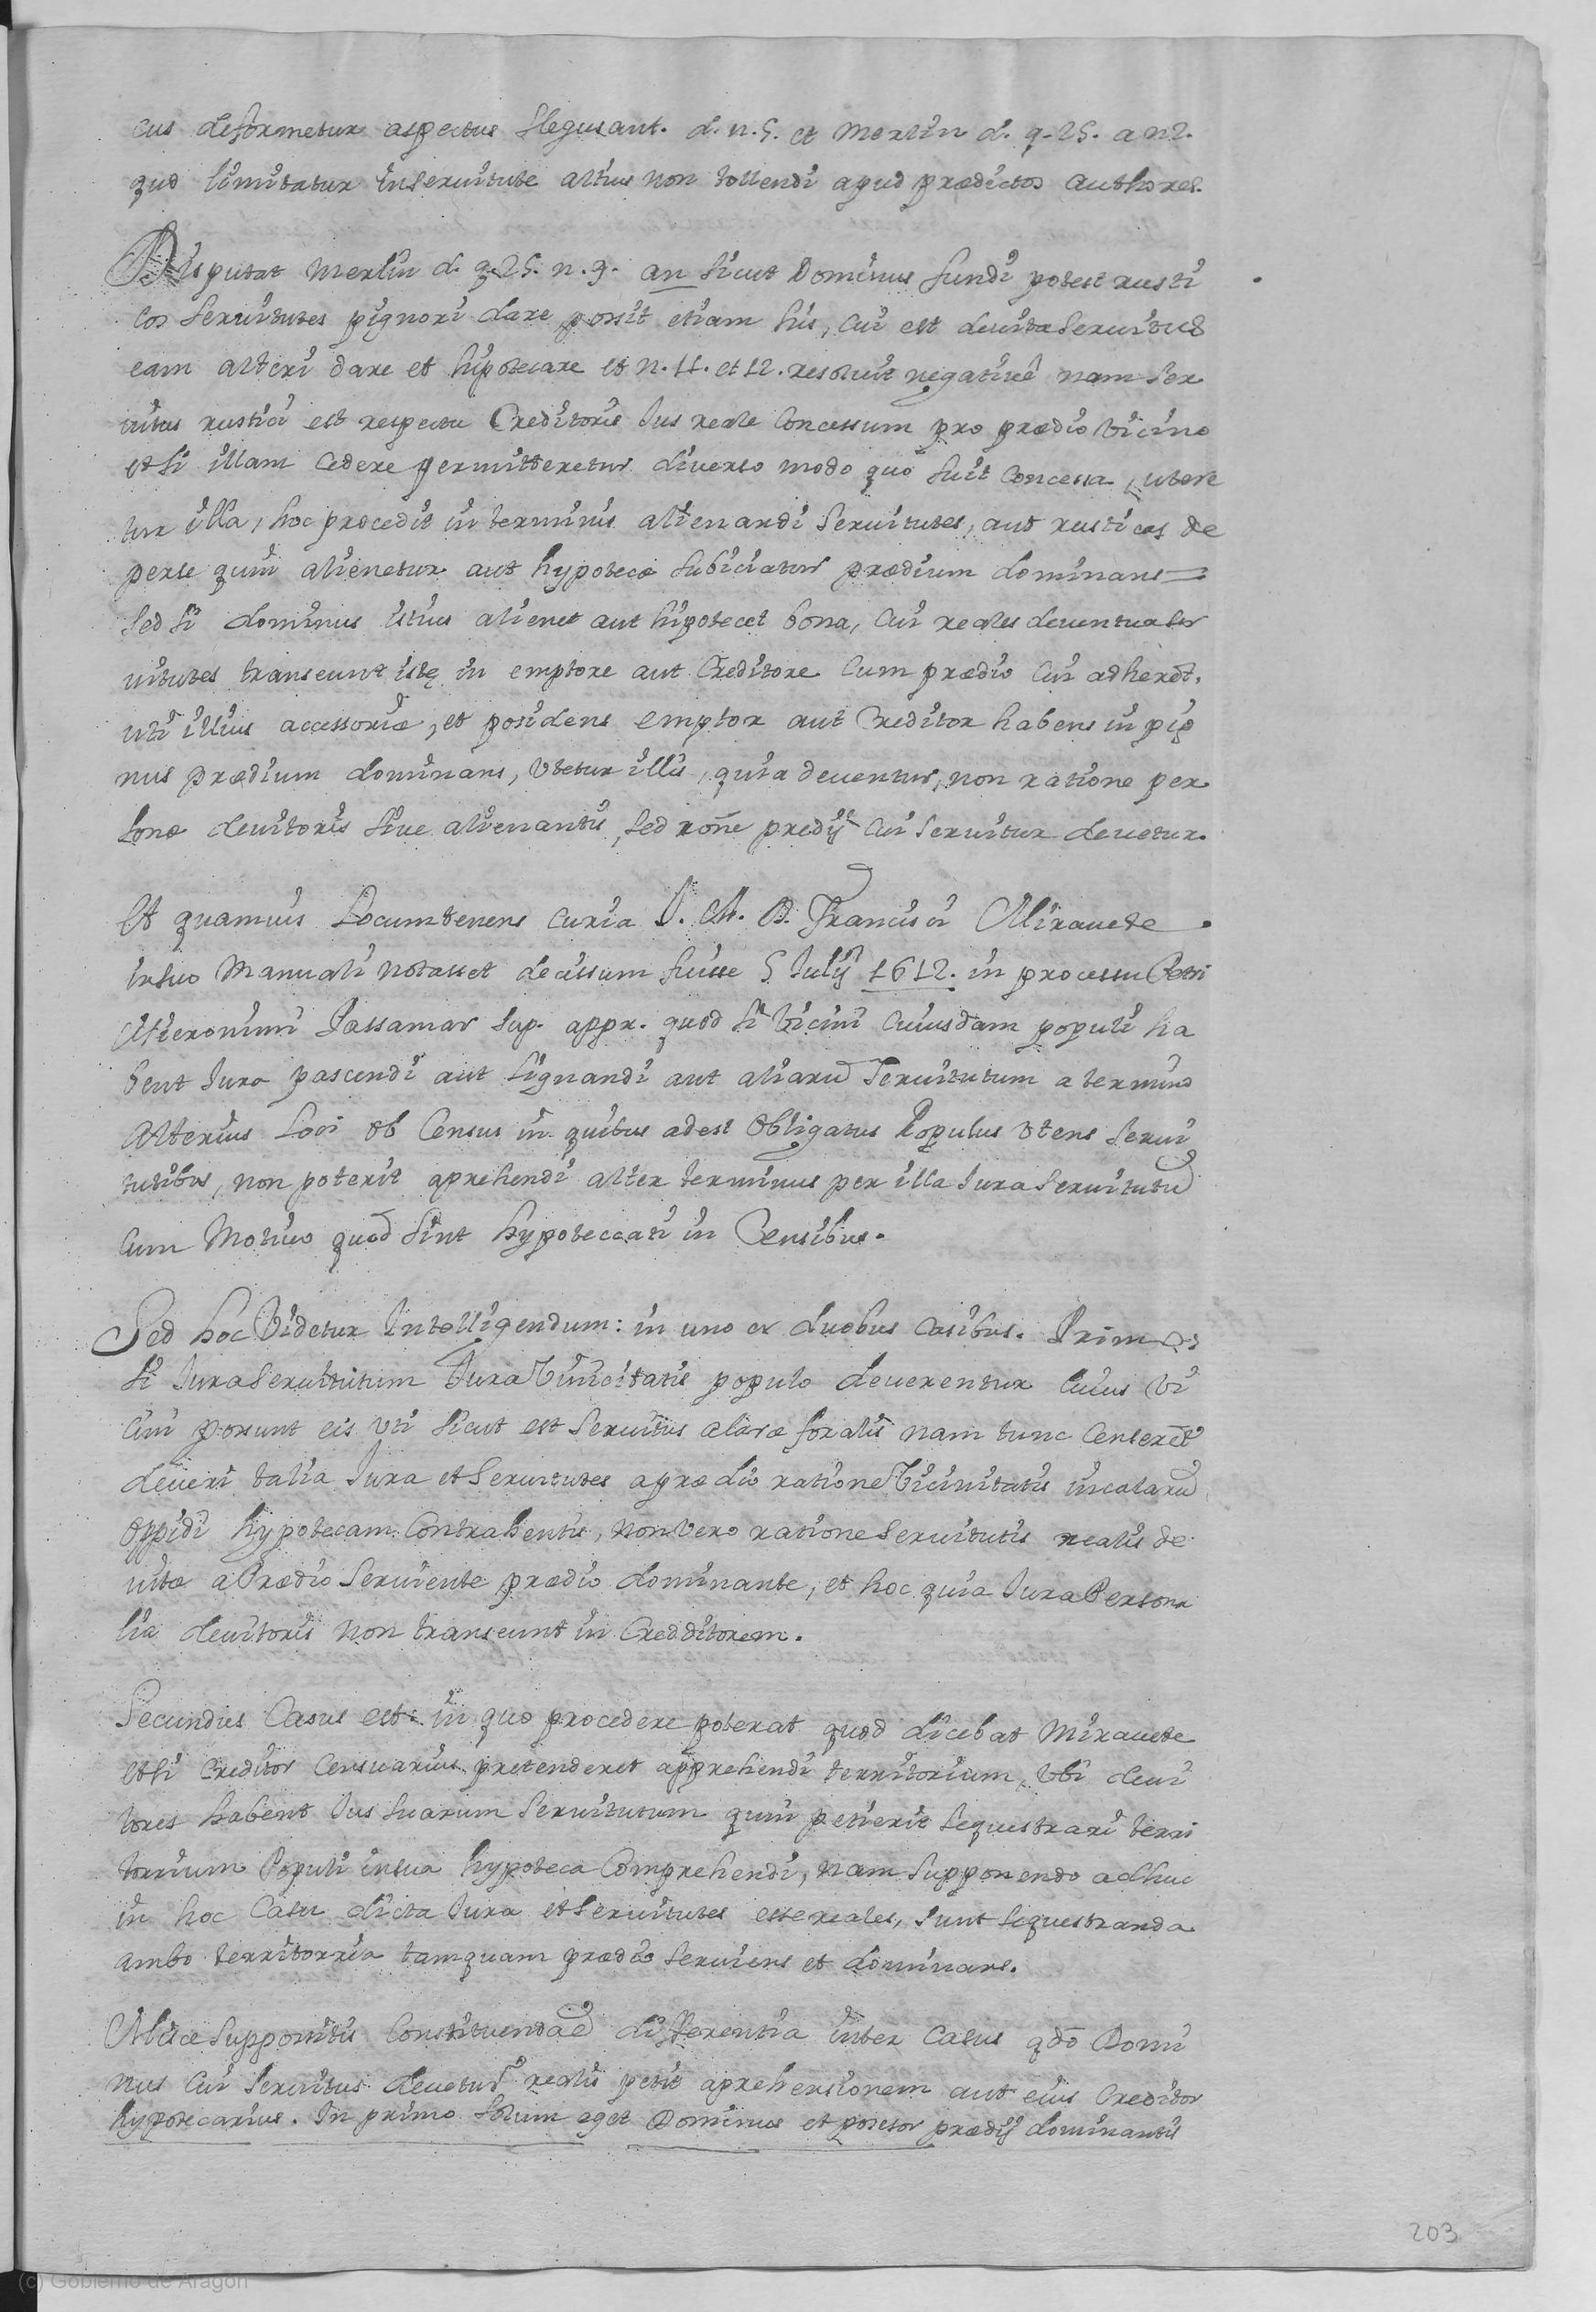 cus deformetur aspectus Negusant. d. n. 5. et Merlin d. q. 25. a n 2.
quod limitatur in servitute altius non tollendi apud prædictos authores.
Disputat Merlin d. q. 25. n. 9. an sicut Dominus fundi potest rusti
cos servitutes pignori dare possit etiam his, cui est devita servitus
eam alteri dare et hipotecare et n. 11. et 12. resoluit negativè nam ser
vitus rustici est respectu Creditoris Ius reale Concessum pro prædio vicino
et si illam Cedere permitteretur diverso modo quo fuit Concessa, utere
tur illa, hoc procedit in terminis alienandi servitutes, aut rusticas de
perse quin alienetur aut hypotecæ subiciatur prædium dominans=
sed si dominus istius alienet aut hipotecet bona, cui reales deventur ser
vitutes transeunt istę in emptore aut Creditore Cum prædio cui adherēt,
uti illius accessoriæ, et posidens emptor aut Creditor habens in pig
nus prædium dominans, Utetur illis, quia deventur, non ratione per
sonæ devitoris sive alienantis, sed rōne predij cui servitur devetur.
Et quamvis Locumtenens Curia D. M. D. Francisci Miravete
in suo Manuali notasset decissum fuisse 5 Julij 1612. in processu Petri
Hieronimi Passamar sup. appr. quod si Vicini cuiusdam populi ha
bent Jura pascendi aut lignandi aut aliarū Servitutum a termino
Alterius Loci ob Census in quibus adest Obligatus Populus Vtens servi
tutibus, non poterit aprehendi alter terminus per illa Iura Servitutū
Cum Motivo quod sint hypoteccati in Censibus.
Sed hoc Videtur Intelligendum: in uno ex duobus casibus. Primos
si Iura servitutum Iura Vinicitatis populo deverentur cuius Vi
cini possunt eis Vti sicut est servitus aleræ foralis nam tunc Censerēt
deveri talia Iura et servitutes a prædio ratione Vicinitatis incolarū
Oppidi hypotecam Contrahentis, non vero ratione servitutis realis de
vitæ a Prædio serviente prædio dominante, et hoc quia Iura Persona
lia devitoris non transeunt in Credditorem.
Secundus Casus est: in quo procedere poterat quod dicebat Miravete
et si Creditor Censuarius pretenderet apprehendi territorium, Vbi devi
tores habent Ius suarum servitutum quin petierit sequestrari terri
torrium Populi in sua hypoteca Comprehendi, nam supponendo adhuc
in hoc Casu dicta Iura et servitutes esse reales, sunt sequestranda
ambo territorria tamquam prædio serviens et dominans.
Hisce suppositis Constituenda differentia inter Casus qdō Domi
nus cui servitus devetur realis petit aprehensionem aut eius Creditor
hypotecarius. In primo solum eget Dominus et posesor prædij dominantis
203
(c) Gobierno de Aragón